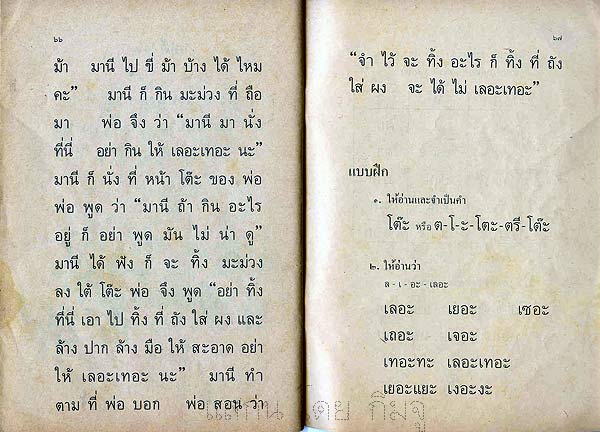 ๖๖
ม้า มานี ไป ขี่ ม้า บ้าง ได้ ไหม
คะ” มานี ก็ กิน มะม่วง ที่ ถือ
มา พ่อ จึง ว่า “มานี มา นั่ง
ที่นี่ อย่า กิน ให้ เลอะเทอะ นะ”
มานี ก็ นั่ง ที่ หน้า โต๊ะ ของ พ่อ
พ่อ พูด ว่า “มานี ถ้า กิน อะไร
อยู่ ก็ อย่า พูด มัน ไม่ น่า ดู”
มานี ได้ ฟัง ก็ จะ ทิ้ง มะม่วง
ลง ใต้ โต๊ะ พ่อ จึง พูด “อย่า ทิ้ง
ที่นี่ เอา ไป ทิ้ง ที่ ถัง ใส่ ผง และ
ล้าง ปาก ล้าง มือ ให้ สะอาด อย่า
ให้ เลอะเทอะ นะ” มานี ทำ
ตาม ที่ พ่อ บอก พ่อ สอน ว่า
๖๗
“จำ ไว้ จะ ทิ้ง อะไร ก็ ทิ้ง ที่ ถัง
ใส่ ผง จะ ได้ ไม่ เลอะเทอะ”
แบบฝึก
๑. ให้อ่านและจำเป็นคำ
โต๊ะ หรือ ต-โ-ะ-โตะ-ตรี-โต๊ะ
๒. ให้อ่านว่า
ล - เ - อะ - เลอะ
เลอะ เยอะ เซอะ
เถอะ เจอะ
เทอะทะ เลอะเทอะ
เยอะแยะ เงอะงะ
แสกน โดย กิมจู